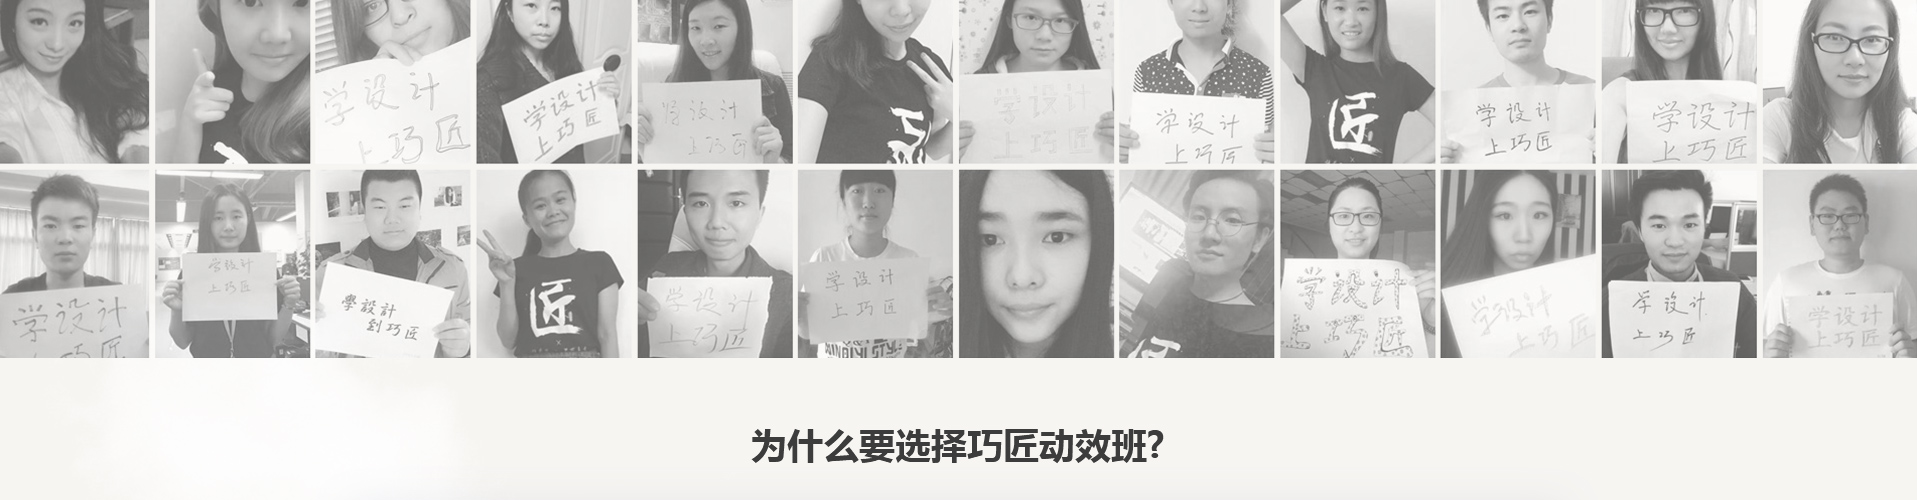 学设计
上巧匠
学设计
上巧匠
学设计
上巧匠
学设计
上巧匠
学设计
上巧匠
匠
学设计
上巧匠
学设计
上巧匠
学设计
上巧匠
学设计
上巧匠
學設計
到巧匠
匠
学设计
上巧匠
学设计
上巧匠
学设计
上巧匠
学设计
上巧匠
学设计
上巧匠
学设计
上巧匠
为什么要选择巧匠动效班?